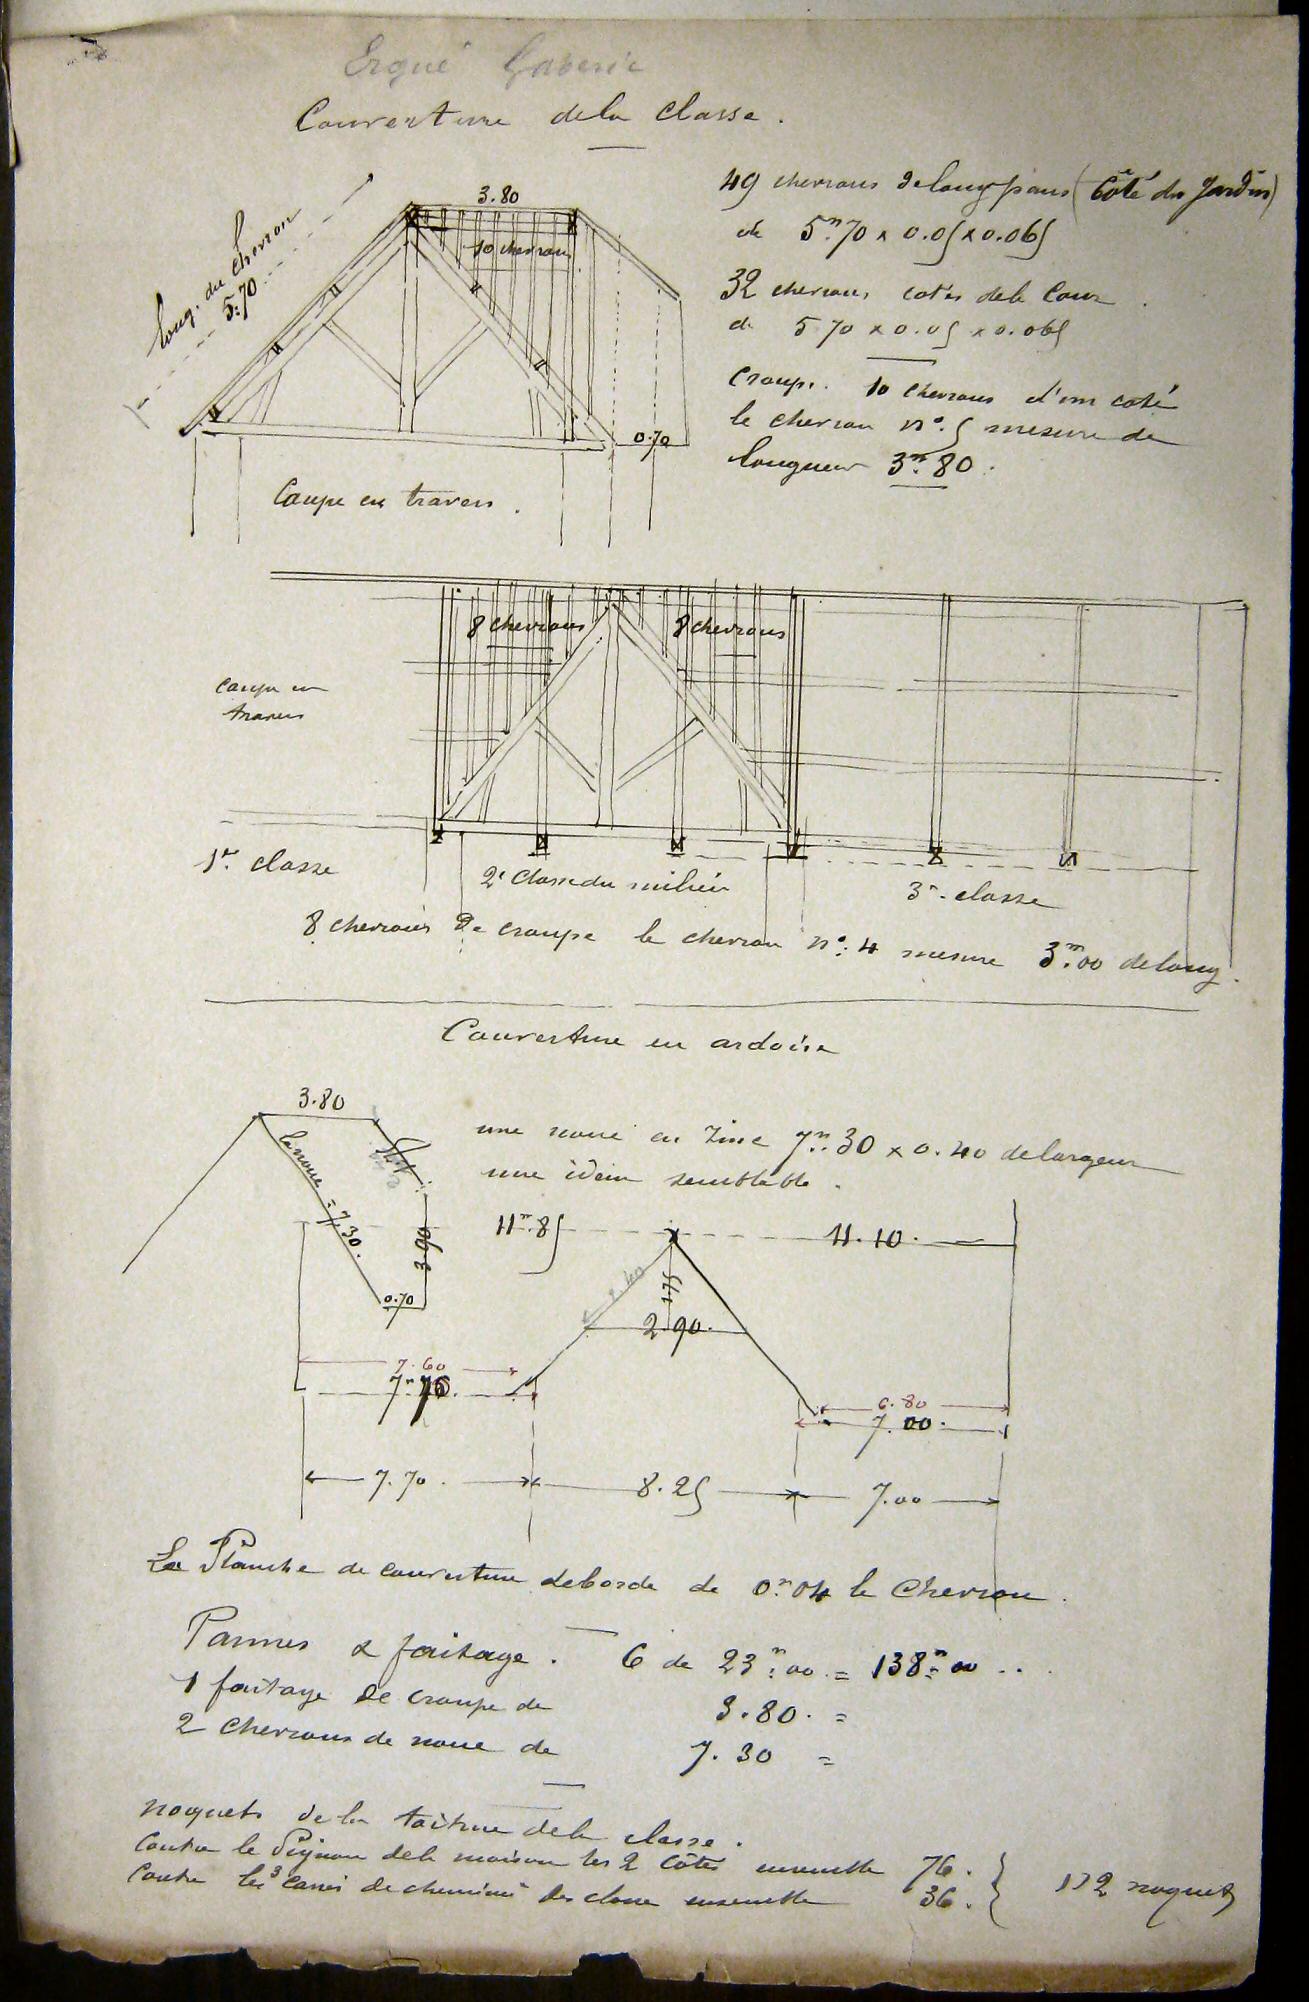 Ergué Gaberic
Couverture de la Classe.
49 chevrons de long pans (Côté du Jardin)
de 5m.70 x 0.05 x 0.065
32 chevrons cotés de la Cour.
de 5 70 x 0.05 x 0.065
Croupe. 10 chevrons d'un coté
le chevron n°. 5 mesure de
longueur 3m.80.
3.80
10 chevrons
long. du chevron
5.70
0.70
Coupe en travers.
8 chevrons
8 chevrons
Coupe en
travers
1re classe
2e Classe du milieu
3e classe
8 chevrons de croupe le chevron n°. 4 mesure 3m.00 de long.
Couverture en ardoise
3.80
la noue = 7.30.
3.00
0.70
une noue en zinc 7m.30 x 0.40 de largeur
une idem semblable.
11m.85
11.10.
1.75
2.90.
7.60
7m
6.80
7.00.
7.70.
8.25
7.00
La Planche de couverture deborde de 0m.04 le Chevron.
Pannes & faitage. 6 de 23m.00 = 138m.00 ..
1 faitage de croupe de 3.80. =
2 Chevrons de noue de 7.30 =
noquets de la toiture de la classe.
Contre le Pignon de la maison les 2 côtés ensemble 76.
Contre les 3 de cheminé des classe ensemble 36.
112 noquets